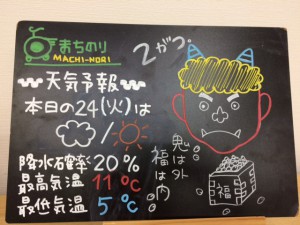 まちのり
MACHI-NORI
天気予報
本日の24(火)は
降水確率20%
最高気温 11℃
最低気温 5℃
2がつ。
鬼は外
福は内
福